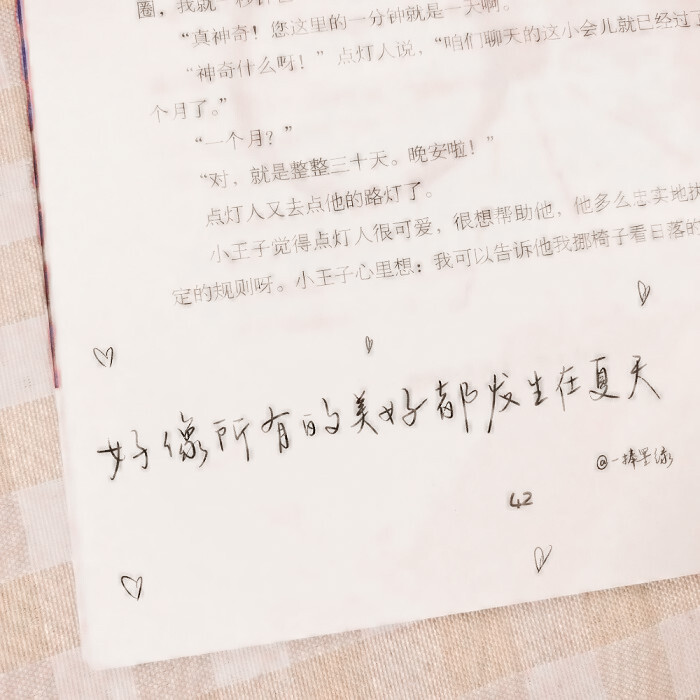 圈，我就一秒钟
“真神奇！您这里的一分钟就是一天啊。
“神奇什么呀！”点灯人说，“咱们聊天的这小会儿就已经过了
个月了。”
“一个月？”
“对，就是整整三十天。晚安啦！”
点灯人又去点他的路灯了。
小王子觉得点灯人很可爱，很想帮助他，他多么忠实地执
定的规则呀。小王子心里想：我可以告诉他我挪椅子看日落的
好像所有的美好都发生在夏天
@一捧星缘
42